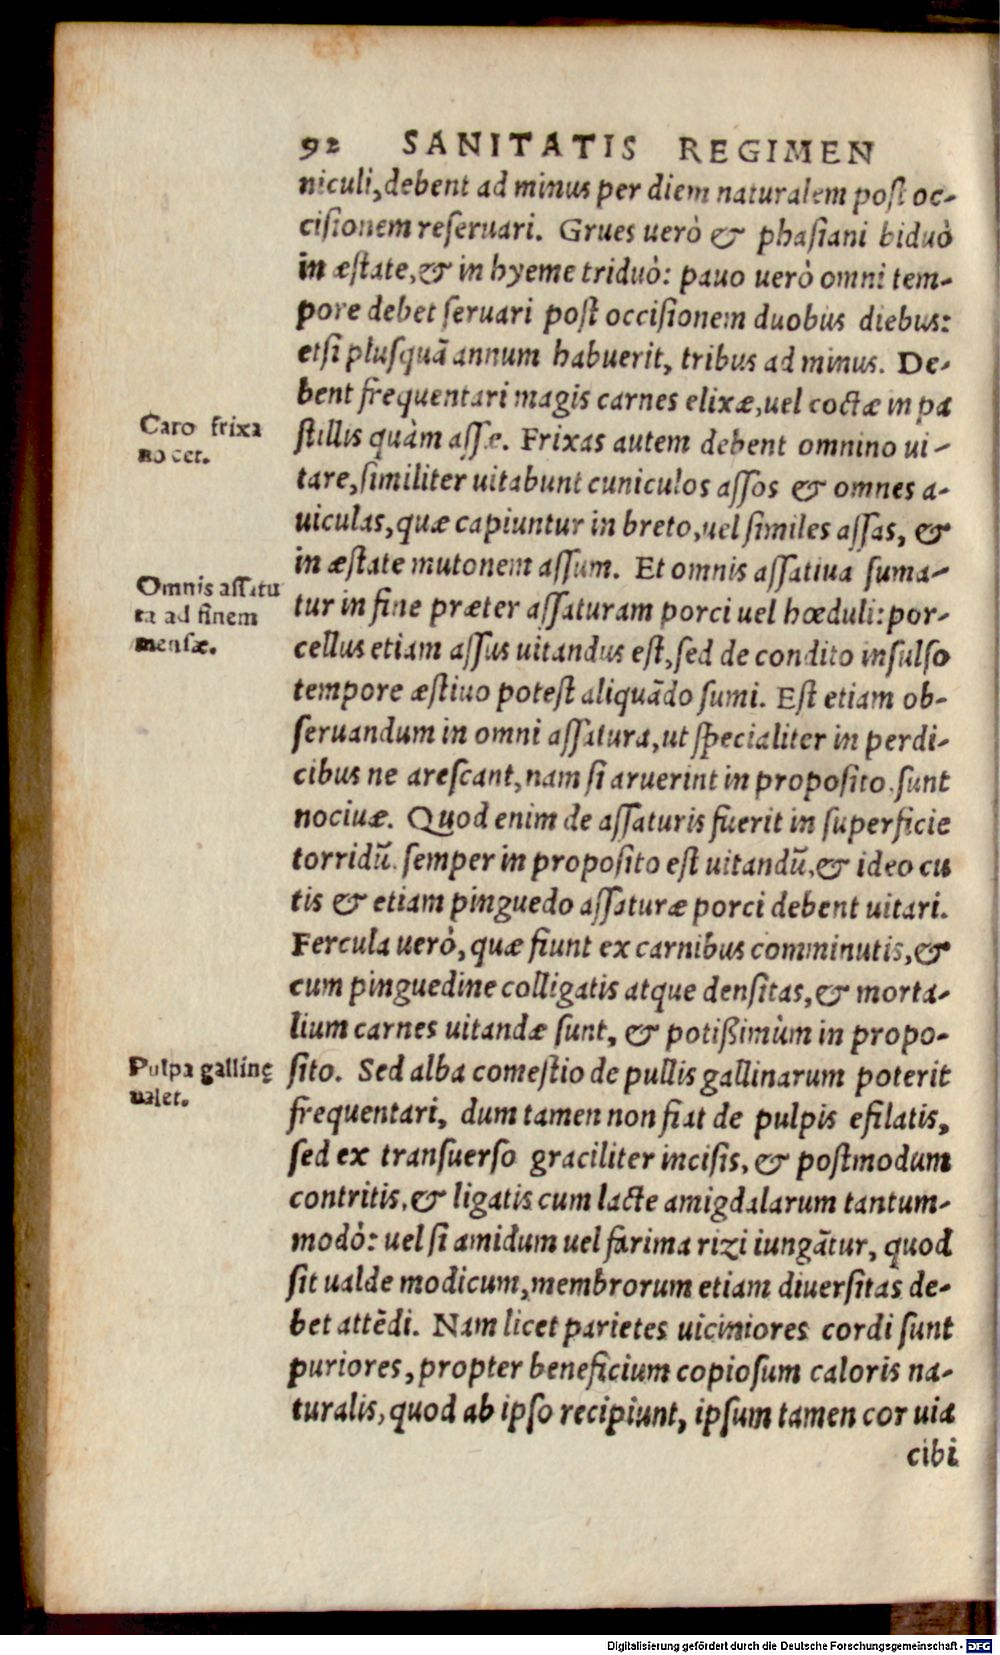 92 SANITATIS REGIMEN
niculi, debent ad minus per diem naturalem post oc-
cisionem reseruari. Grues uerò & phasiani biduò
in æstate, & in hyeme triduò: pauo uerò omni tem-
pore debet seruari post occisionem duobus diebus:
etsi plusquā annum habuerit, tribus ad minus. De-
bent frequentari magis carnes elixæ, uel coctæ in pa
Caro frixa
nocet.
stillis quàm assæ. Frixas autem debent omnino ui-
tare, similiter uitabunt cuniculos assos & omnes a-
uiculas, quæ capiuntur in breto, uel similes assas, &
in æstate mutonem assum. Et omnis assatiua suma-
Omnis assatu
ra ad finem
mensæ.
tur in fine præter assaturam porci uel hœduli: por-
cellus etiam assus uitandus est, sed de condito insulso
tempore æstiuo potest aliquādo sumi. Est etiam ob-
seruandum in omni assatura, ut specialiter in perdi-
cibus ne arescant, nam si aruerint in proposito, sunt
nociuæ. Quod enim de assaturis fuerit in superficie
torridū, semper in proposito est uitandū, & ideo cu
tis & etiam pinguedo assaturæ porci debent uitari.
Fercula uerò, quæ fiunt ex carnibus comminutis, &
cum pinguedine colligatis atque densitas, & morta-
lium carnes uitandæ sunt, & potißimùm in propo-
Pulpa gallinę
ualet.
sito. Sed alba comestio de pullis gallinarum poterit
frequentari, dum tamen non fiat de pulpis efilatis,
sed ex transuerso graciliter incisis, & postmodum
contritis, & ligatis cum lacte amigdalarum tantum-
modò: uel si amidum uel farima rizi iungātur, quod
sit ualde modicum, membrorum etiam diuersitas de-
bet attēdi. Nam licet parietes uiciniores cordi sunt
puriores, propter beneficium copiosum caloris na-
turalis, quod ab ipso recipiunt, ipsum tamen cor uix
cibi
Digitalisierung gefördert durch die Deutsche Forschungsgemeinschaft - DFG